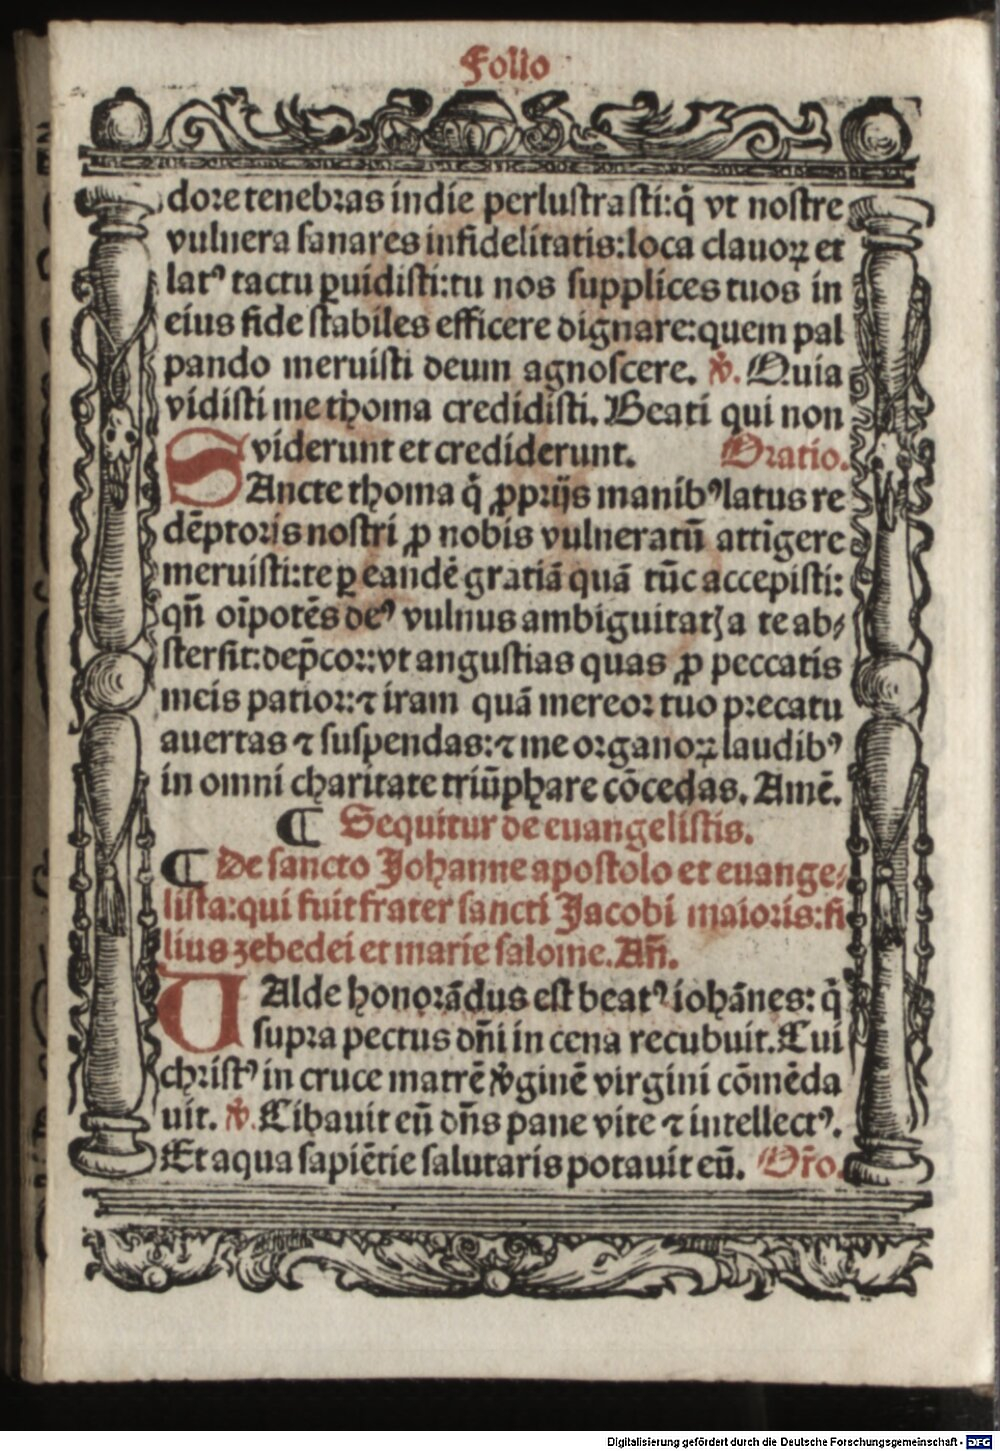 Folio
dore tenebras indie perlustrasti:q̃ vt nostre
vulnera sanares infidelitatis:loca clauoꝝ et
latꝰ tactu ꝑuidisti:tu nos supplices tuos in
eius fide stabiles efficere dignare:quem pal
pando meruisti deum agnoscere. ꝟ. Quia
vidisti me thoma credidisti. Beati qui non
viderunt et crediderunt. Oratio.
SAncte thoma q̃ ꝓprijs manibꝰ latus re
dēptoris nostri ꝓ nobis vulneratū attigere
meruisti:te ꝑ eandē gratiā quā tūc accepisti:
qñ oīpotēs deꝰ vulnus ambiguitatꝭ a te ab⸗
stersit:dep̄cor:vt angustias quas ꝓ peccatis
meis patior:⁊ iram quā mereor tuo precatu
auertas ⁊ suspendas:⁊ me organoꝝ laudibꝰ
in omni charitate triūphare cōcedas. Amē.
¶ Sequitur de euangelistis.
¶ De sancto Johanne apostolo et euange⸗
lista:qui fuit frater sancti Jacobi maioris:fi
lius zebedei et marie salome. Añ.
VAlde honorādus est beatꝰ iohānes: q̃
supra pectus dñi in cena recubuit. Cui
christꝰ in cruce matrē ꝟginē virgini cōmēda
uit. ꝟ. Cibauit eū dñs pane vite ⁊ intellectꝰ.
Et aqua sapiētie salutaris potauit eū. Or̃o.
Digitalisierung gefördert durch die Deutsche Forschungsgemeinschaft - DFG